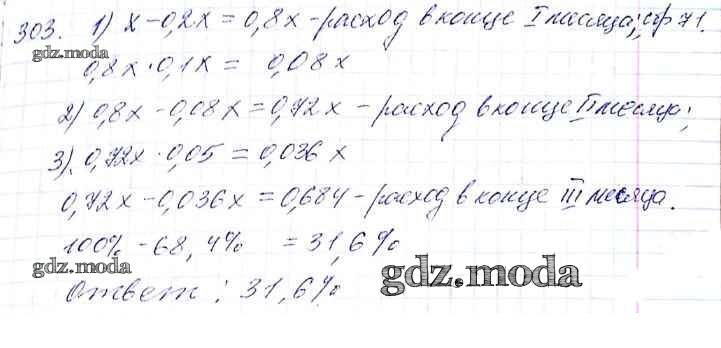 303. 1) x - 0,2x = 0,8x - расход в конце I месяца; стр 71.
gdz.moda
0,8x · 0,1x = 0,08x
2) 0,8x - 0,08x = 0,72x - расход в конце II месяца;
3) 0,72x · 0,05 = 0,036x
0,72x - 0,036x = 0,684 - расход в конце III месяца.
100% - 68,4% = 31,6%
gdz.moda
gdz.moda
Ответ: 31,6%